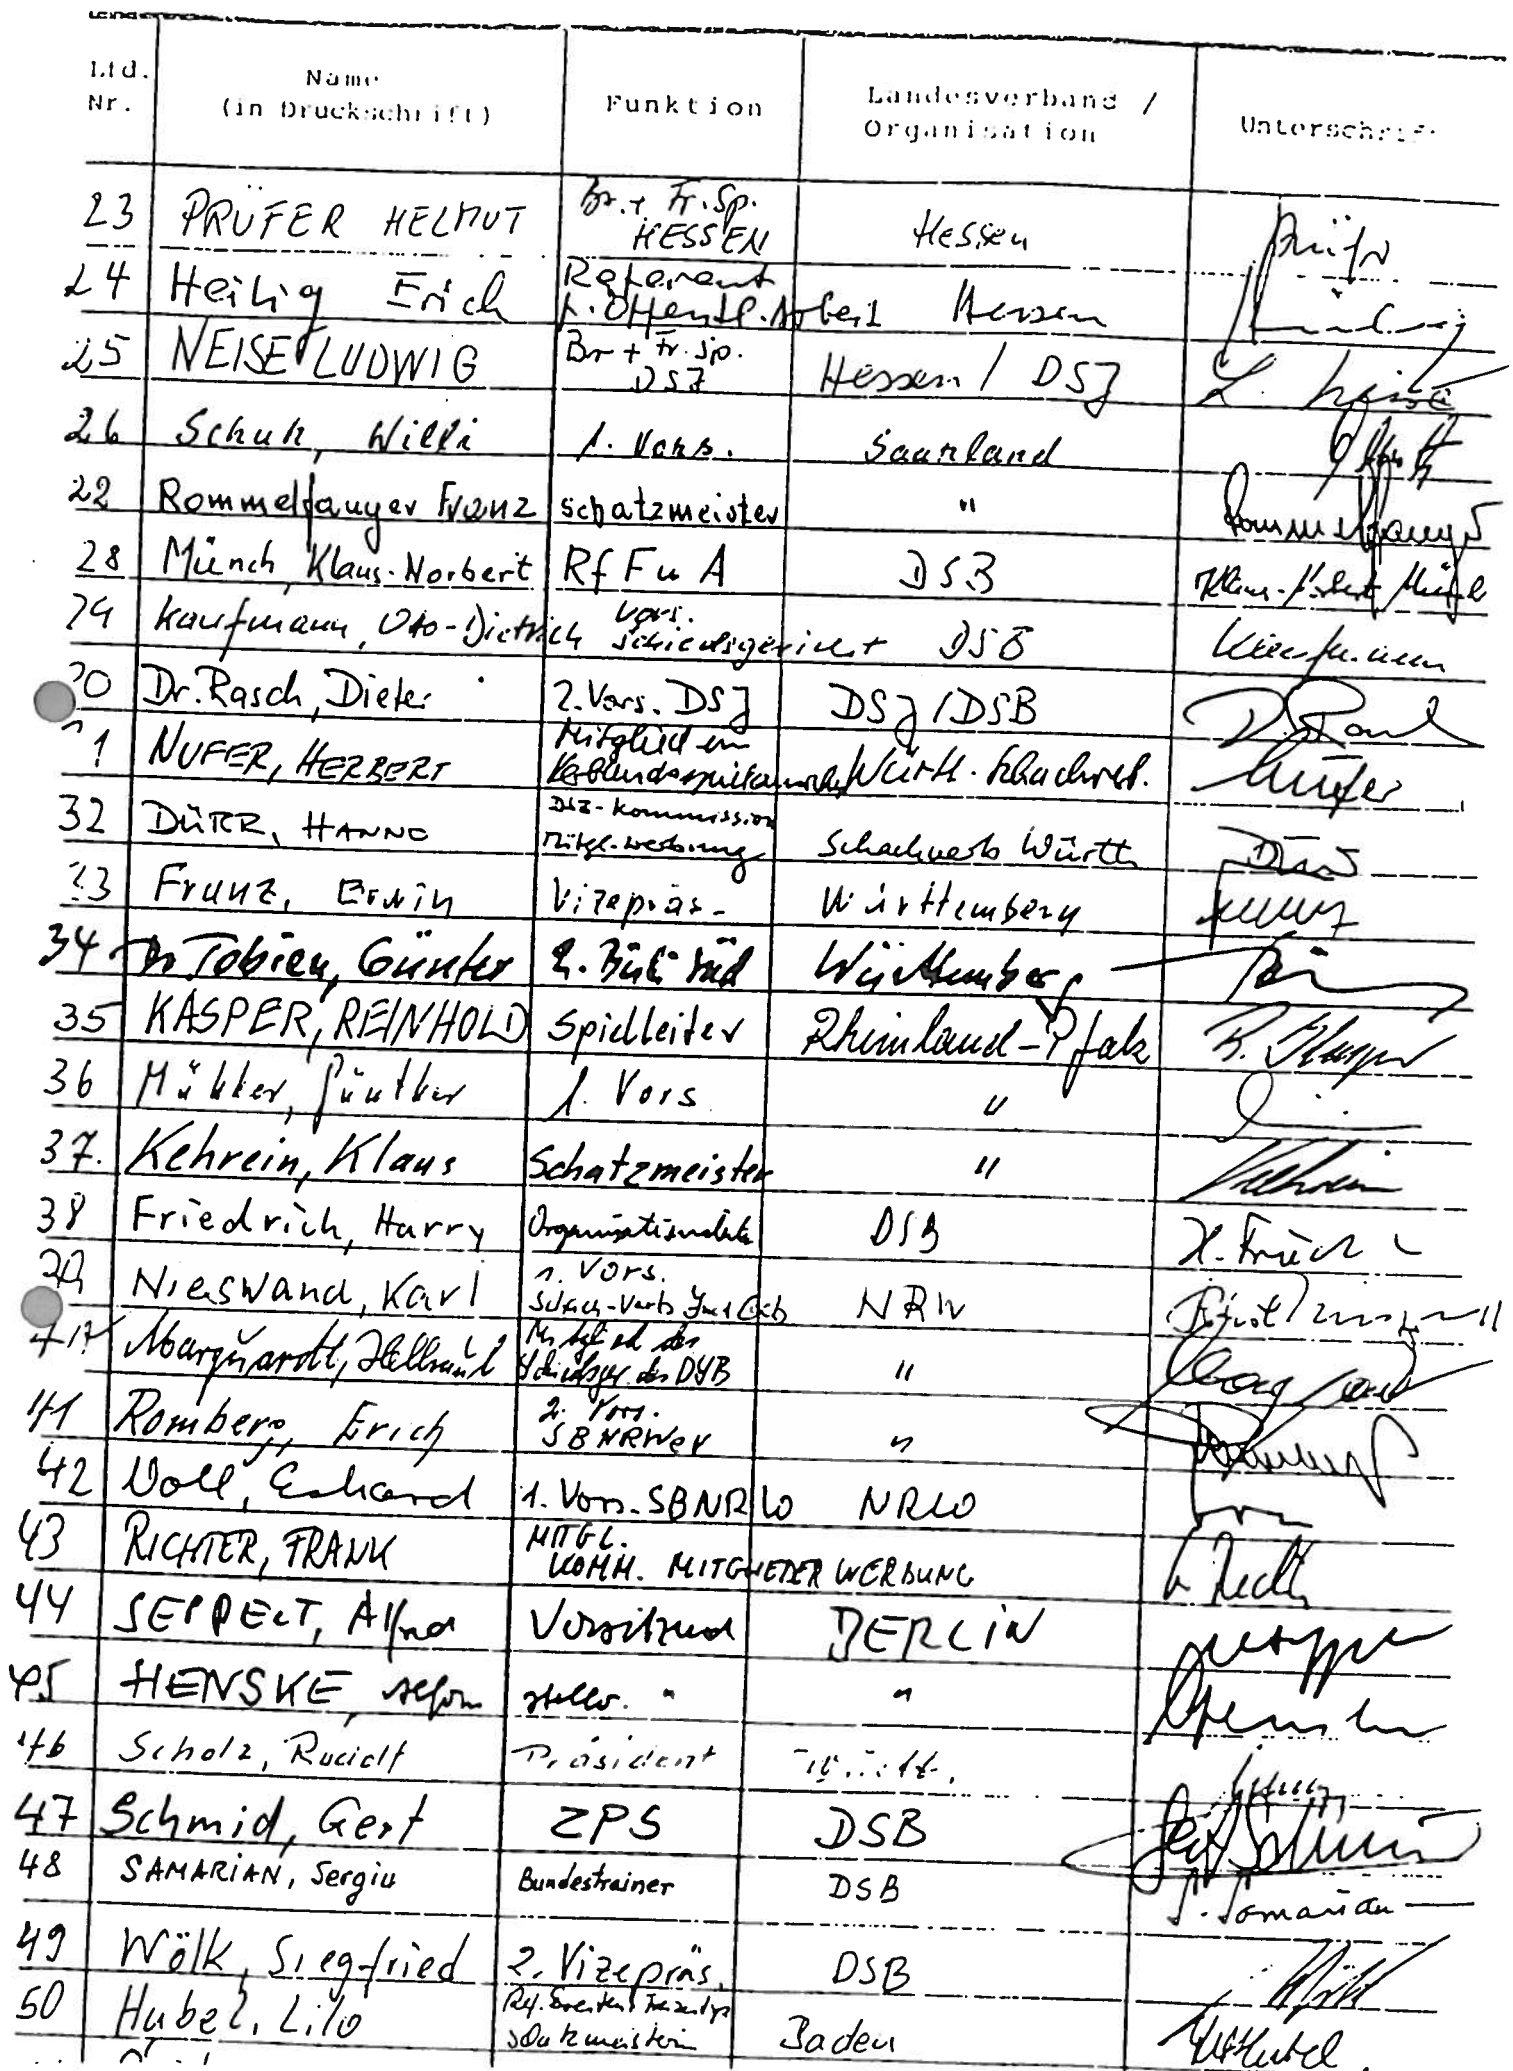 Lfd. Nr. Name (in Druckschrift) Funktion Landesverband / Organisation Unterschrift
23 PRÜFER HELMUT Br. + Fr. Sp. HESSEN Hessen Prüfer
24 Heilig Erich Referent f. Öffentl. Arbeit Hessen
25 NEISE LUDWIG Br + Fr. Sp. DSJ Hessen / DSJ L. Neise
26 Schuh, Willi 1. Vors. Saarland
22 Rommelfanger Franz Schatzmeister " Rommelfanger
28 Münch, Klaus-Norbert Rf F u A DSB Klaus-Norbert Münch
29 Kaufmann, Otto-Dietrich Vors. Schiedsgericht DSB Kaufmann
30 Dr. Rasch, Dieter 2. Vors. DSJ DSJ / DSB D. Rasch
1 NUFER, HERBERT Mitglied im Württ. Schachverb. Nufer
32 DÜRR, HANNO DSB-Kommission Mitgl.werbung Schachverb Württ. Dürr
33 Franz, Erwin Vizepräs. Württemberg Franz
34 Dr Tobien, Günter Württemberg
35 KASPER, REINHOLD Spielleiter Rheinland-Pfalz R. Kasper
36 Müller, Günther 1. Vors "
37. Kehrein, Klaus Schatzmeister " Kehrein
38 Friedrich, Harry DSB H. Friedr
39 Nieswand, Karl 1. Vors. NRW
Marquardt, Hellmut Mitglied des Schiedsger. des DSB "
41 Romberg, Erich 2. Vors. SBNRWeV " Romberg
42 Voll, Eckard 1. Vors. SBNRW NRW
43 RICHTER, FRANK MITGL. KOMM. MITGLIEDERWERBUNG F. Richter
44 SEPPELT, Alfred Vorsitzend BERLIN Seppelt
45 HENSKE, Alfons stellv. " " Henske
46 Scholz, Rudolf Präsident
47 Schmid, Gert ZPS DSB Gert Schmid
48 SAMARIAN, Sergiu Bundestrainer DSB S. Samarian
49 Wölk, Siegfried 2. Vizepräs. DSB Wölk
50 Hubel, Lilo Schatzmeisterin Baden Hubel